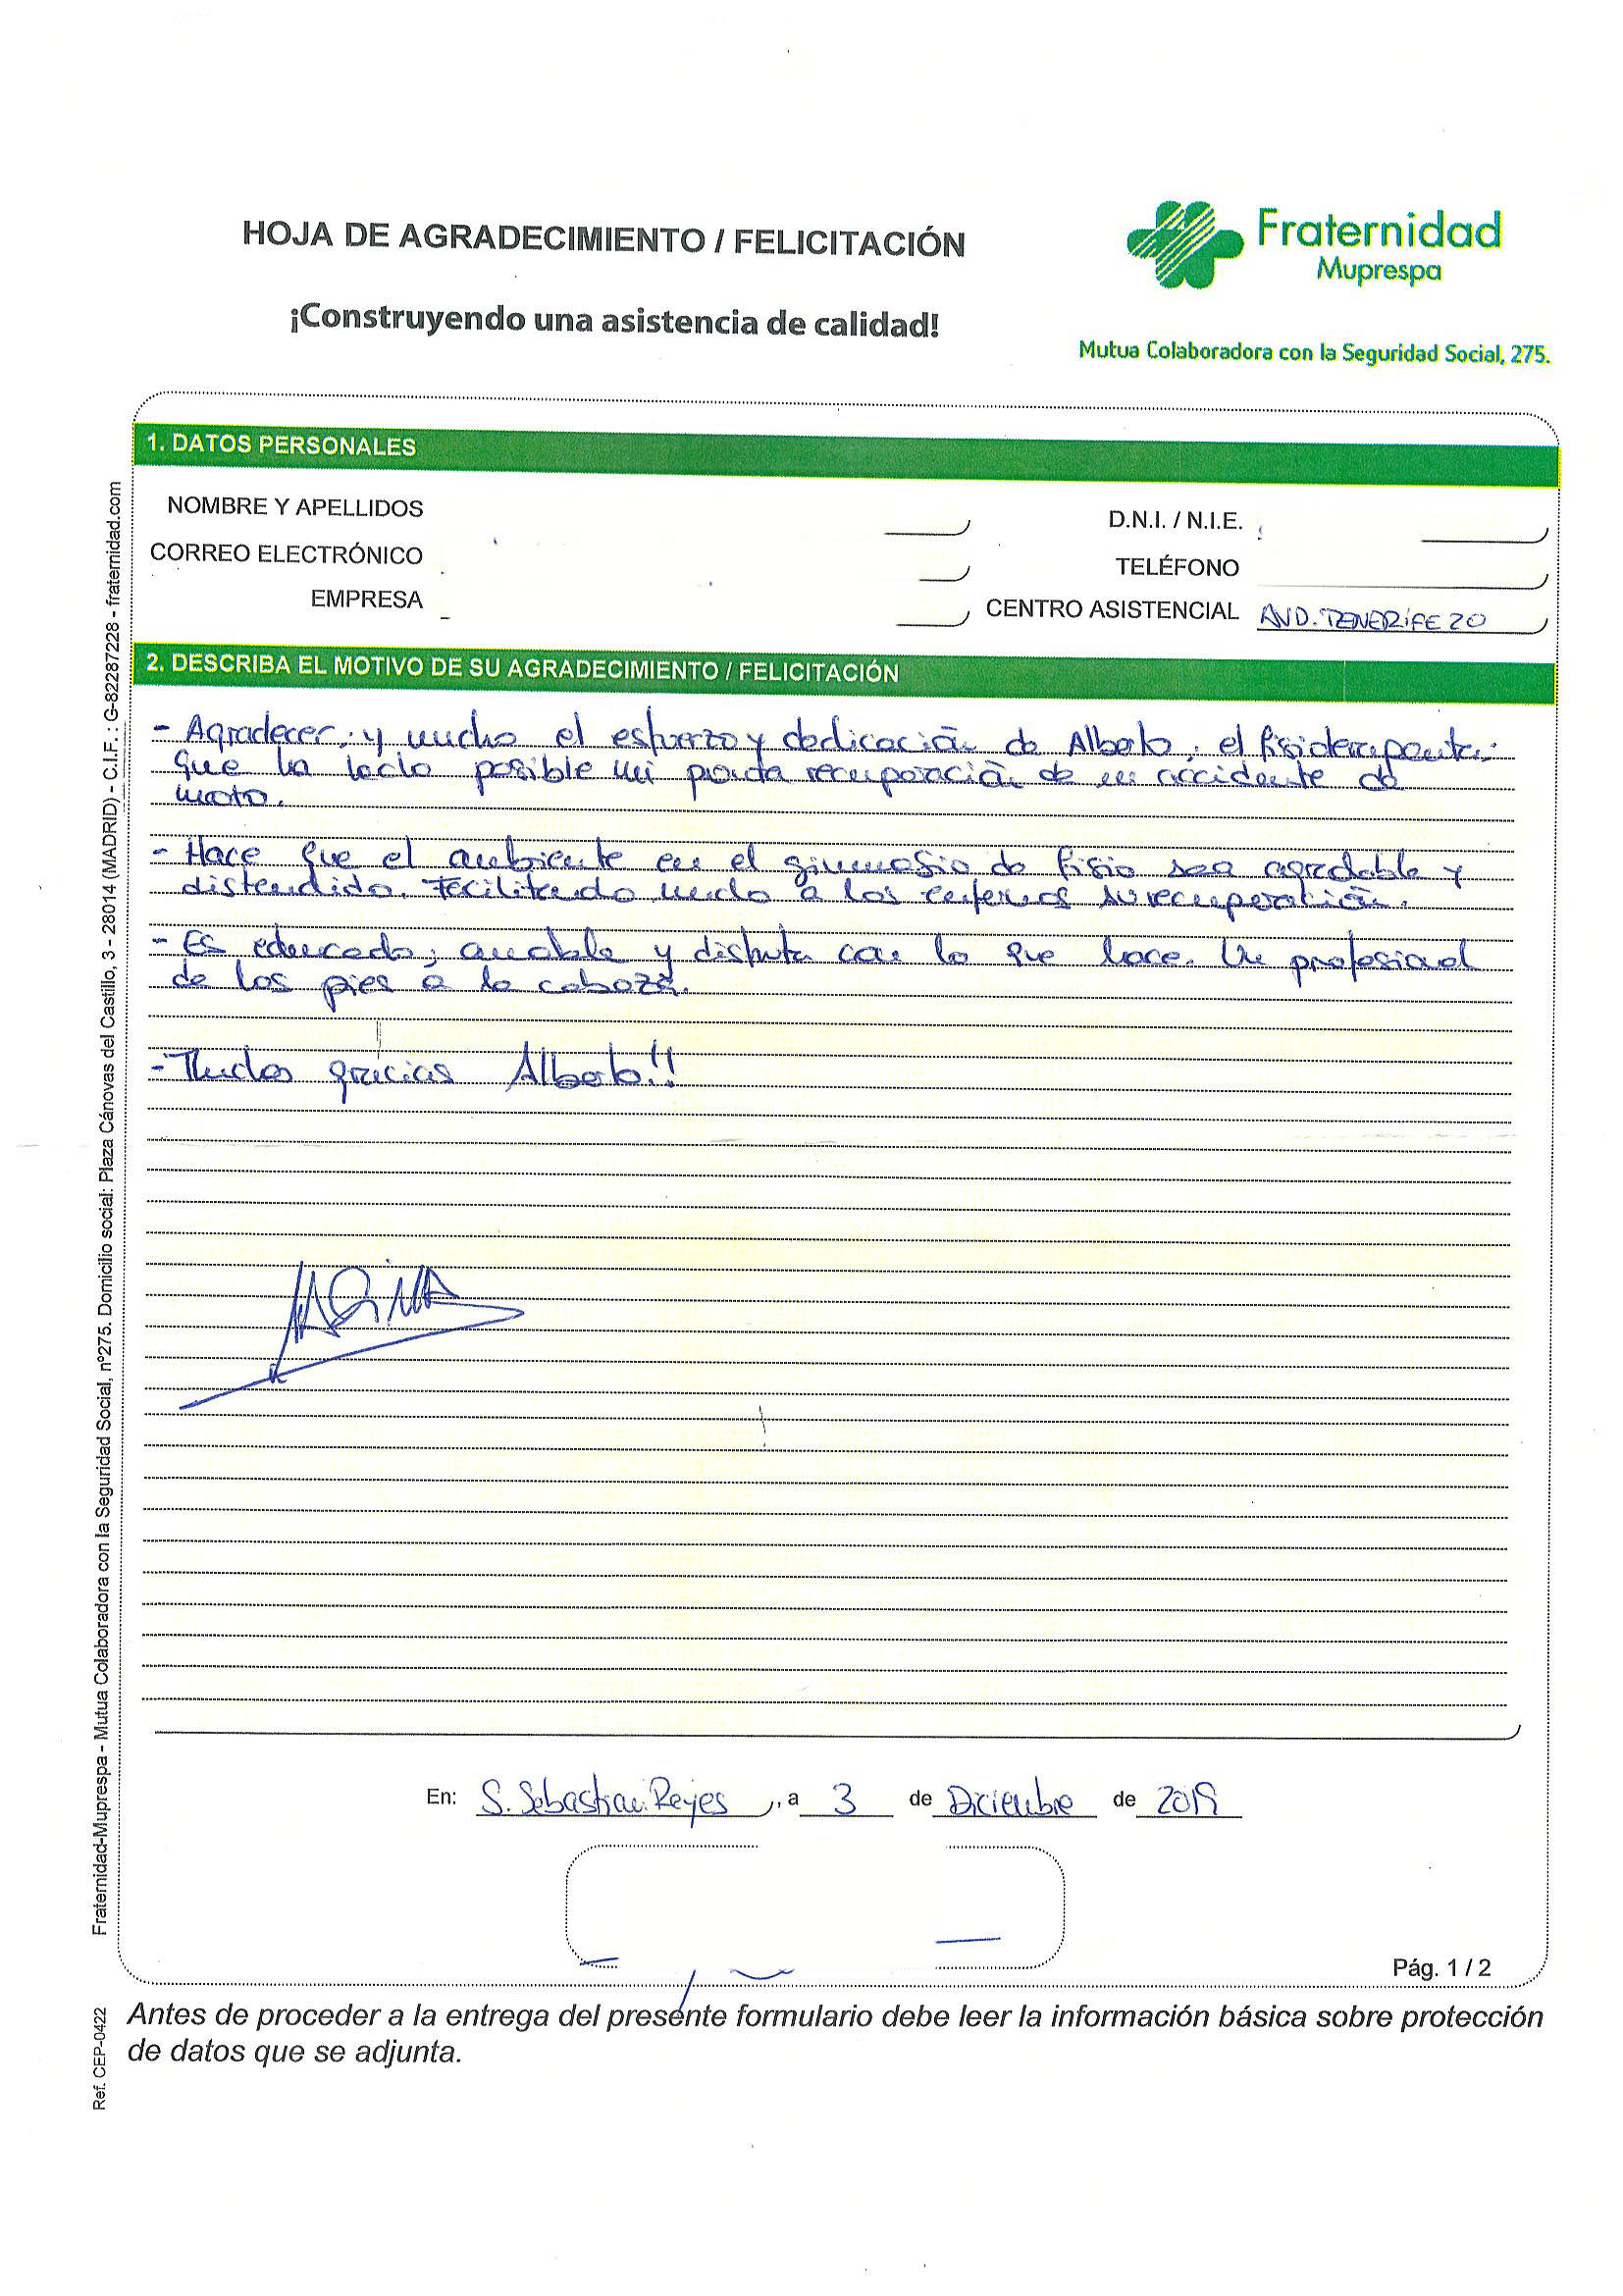 HOJA DE AGRADECIMIENTO / FELICITACIÓN
¡Construyendo una asistencia de calidad!
Fraternidad
Muprespa
Mutua Colaboradora con la Seguridad Social, 275.
1. DATOS PERSONALES
NOMBRE Y APELLIDOS
D.N.I. / N.I.E.
CORREO ELECTRÓNICO
TELÉFONO
EMPRESA
CENTRO ASISTENCIAL AVD. TENERIFE 20
2. DESCRIBA EL MOTIVO DE SU AGRADECIMIENTO / FELICITACIÓN
- Agradecer, y mucho el esfuerzo y dedicación de Alberto, el fisioterapeuta.
Que ha hecho posible mi pronta recuperación de un accidente de
moto.
- Hace que el ambiente en el gimnasio de fisio sea agradable y
distendido. Facilitando mucho a los enfermos su recuperación.
- Es educado, amable y disfruta con lo que hace. Un profesional
de los pies a la cabeza.
- Muchas gracias Alberto!!
En: S. Sebastian Reyes, a 3 de Diciembre de 2019
Pág. 1 / 2
Antes de proceder a la entrega del presente formulario debe leer la información básica sobre protección
de datos que se adjunta.
Fraternidad-Muprespa - Mutua Colaboradora con la Seguridad Social, nº275. Domicilio social: Plaza Cánovas del Castillo, 3 - 28014 (MADRID) - C.I.F. : G-82287228 - fraternidad.com
Ref. CEP-0422